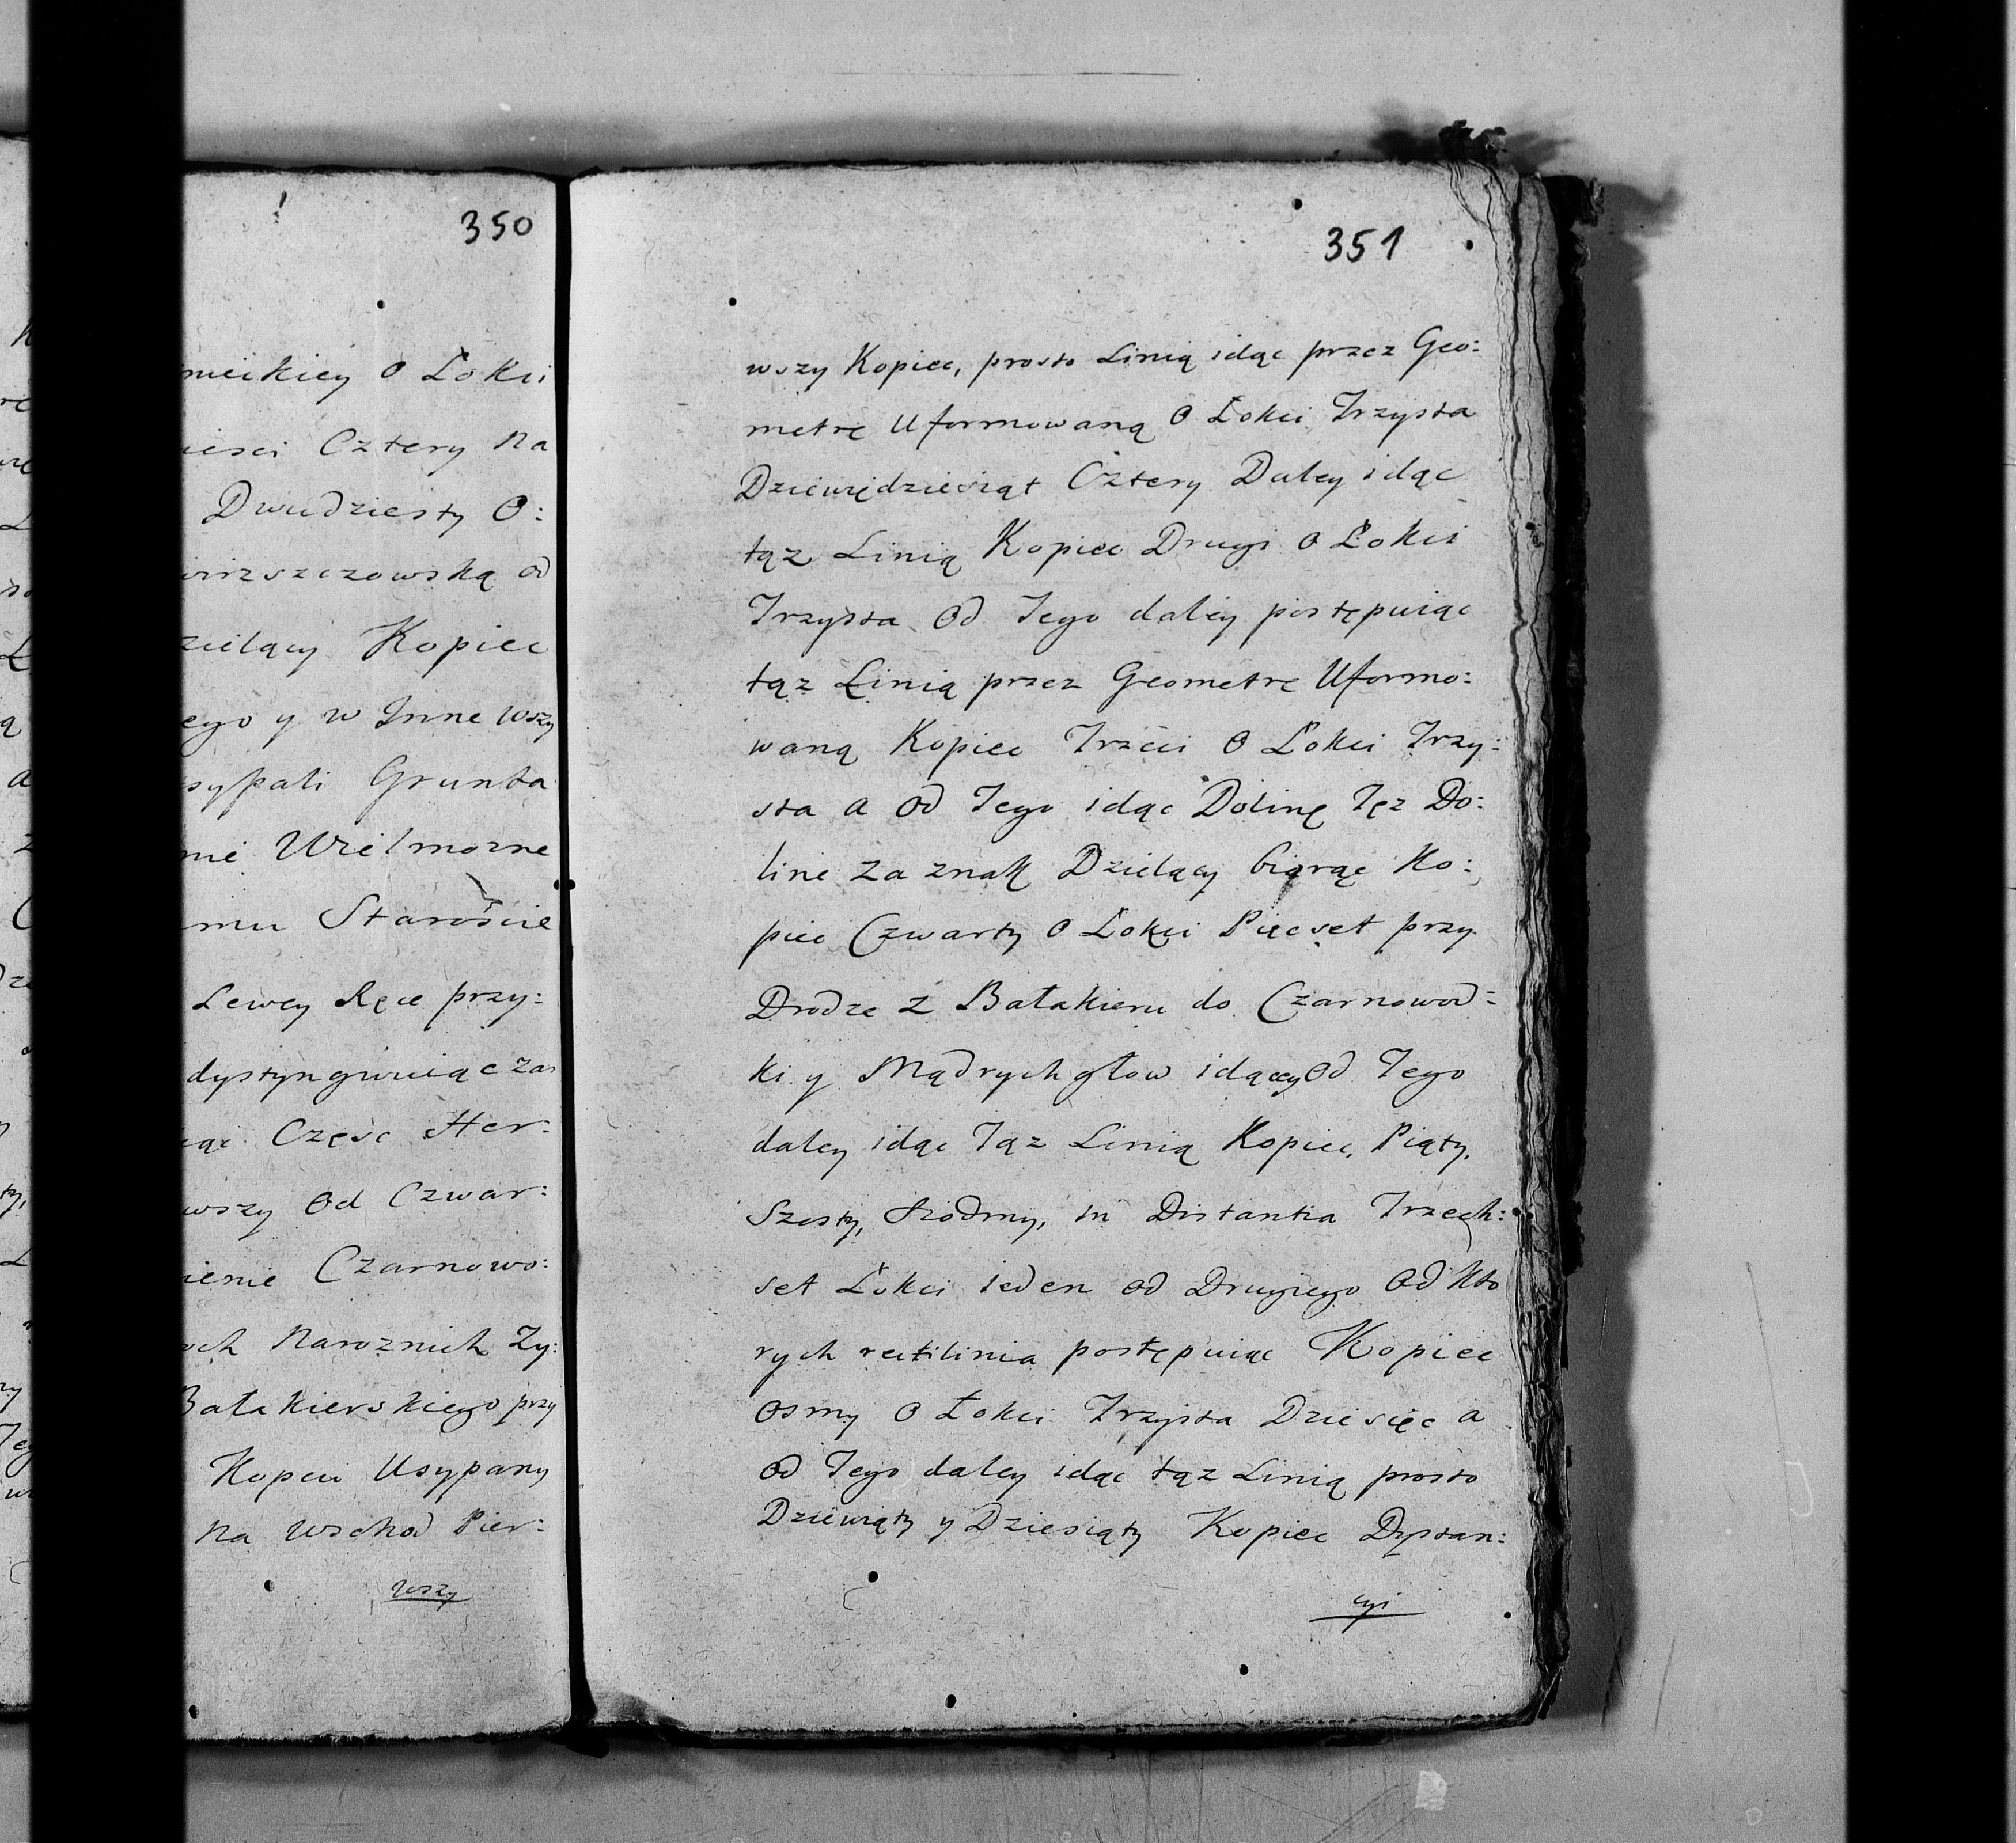 350
meikiey O Łokci
iesci Cztery Na
Dwudziesty O:
wirzszczowską od
zielący Kopiec
ego y w Inne wszy
sypali Grunta
nie Wielmozne
mu Starościе
Lewey Ręce przy:
dystyngwuiąc zas
iąc Częsc Her:
wszy Od Czwar:
ienie Czarnowo:
ych Naroznich Zy:
Bałakierskiego przy
Kopcu Usypany
Na Wschod Pier:
wszy
351
wszy Kopiec, prosto Linią idąc przez Geo:
metrę Uformowaną O Łokci Trzysta
Dziewiędziesiąt Cztery Daley idąc
tąz Linią Kopiec Drugi O Łokci
Trzysta Od Tego daley postępuiąc
tąz Linią przez Geometrę Uformo:
waną Kopiec Trzeci O Łokci Trzy:
sta a Od Tego idąc Dolinę Tęz Do:
line Za znak Dzielący biąrąc Ko:
piec Czwarty O Łokci Pięcset przy
Drodze z Bałakieru do Czarnowod:
ki y Mądrych głow idącey Od Tego
daley idąc Tąz Linią Kopiec, Piąty,
Szosty, Siodmy, in Distantia Trzech:
set Łokci ieden od Drugiego Od Kto
rych rectilinia postępuiąc Kopiec
Osmy O Łokci Trzysta Dziesięc a
Od Tego daley idąc tąz Linią prosto
Dziewiąty y Dziesiąty Kopiec Dystan:
cyi